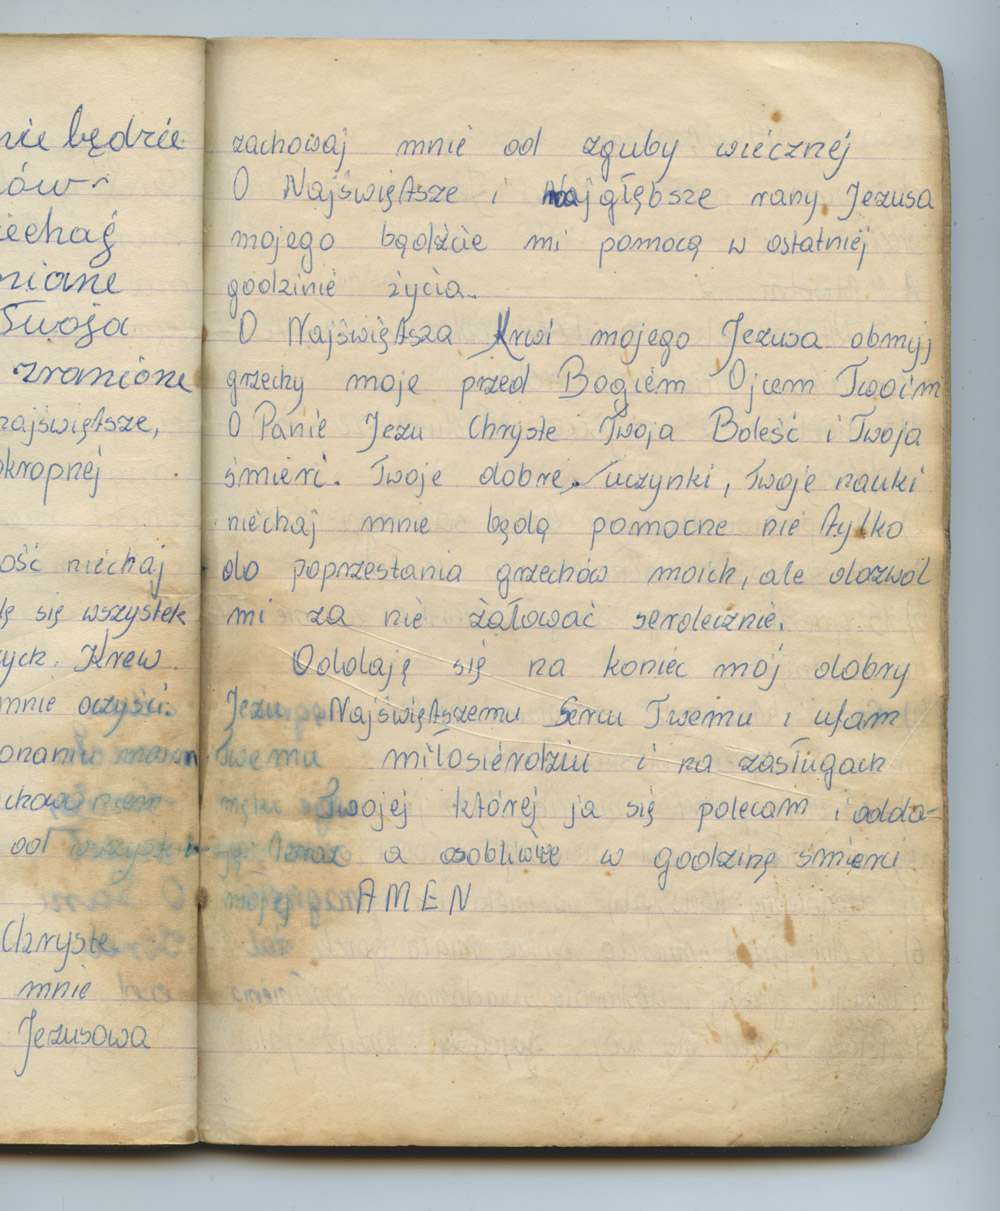 nie będzie
ów
niechaj
niane
Twoja
zranione
najświętsze,
okropnej
ość niechaj
się wszystek
ych. Krew
mnie oczyści.
od
Chryste
mnie
Jezusowa
zachowaj mnie od zguby wiecznej
O Najświętsze i Najgłębsze rany Jezusa
mojego bądźcie mi pomocą w ostatniej
godzinie życia.
O Najświętsza Krwi mojego Jezusa obmyj
grzechy moje przed Bogiem Ojcem Twoim
O Panie Jezu Chryste Twoja Boleść i Twoja
śmierć. Twoje dobre, uczynki, Twoje nauki
niechaj mnie będą pomocne nie tylko
do poprzestania grzechów moich, ale dozwól
mi za nie żałować serdecznie.
Oddaję się na koniec mój dobry
Jezu Najświętszemu Sercu Twemu i ufam
Twemu miłosierdziu i na zasługach
męki Twojej której ja się polecam i odda-
ję teraz a osobliwie w godzinę śmierci
mojej AMEN